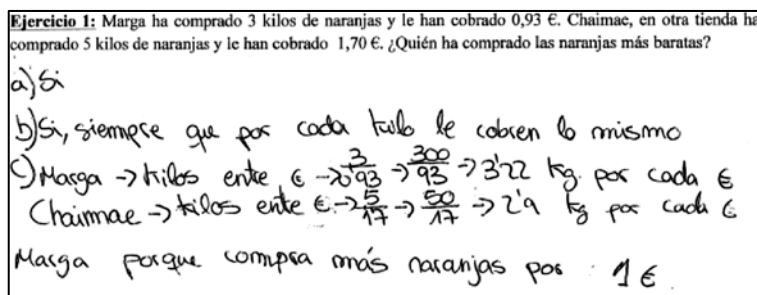 Ejercicio 1: Marga ha comprado 3 kilos de naranjas y le han cobrado 0,93 €. Chaimae, en otra tienda ha
comprado 5 kilos de naranjas y le han cobrado 1,70 €. ¿Quién ha comprado las naranjas más baratas?
a) Si
b) Si, siempre que por cada kilo le cobren lo mismo
c) Marga -> kilos entre € -> 3/0'93 -> 300/93 -> 3'22 kg. por cada €
Chaimmae -> kilos ente € -> 5/17 -> 50/17 -> 2'9 kg por cada €
Marga porque compra más naranjas por 1 €